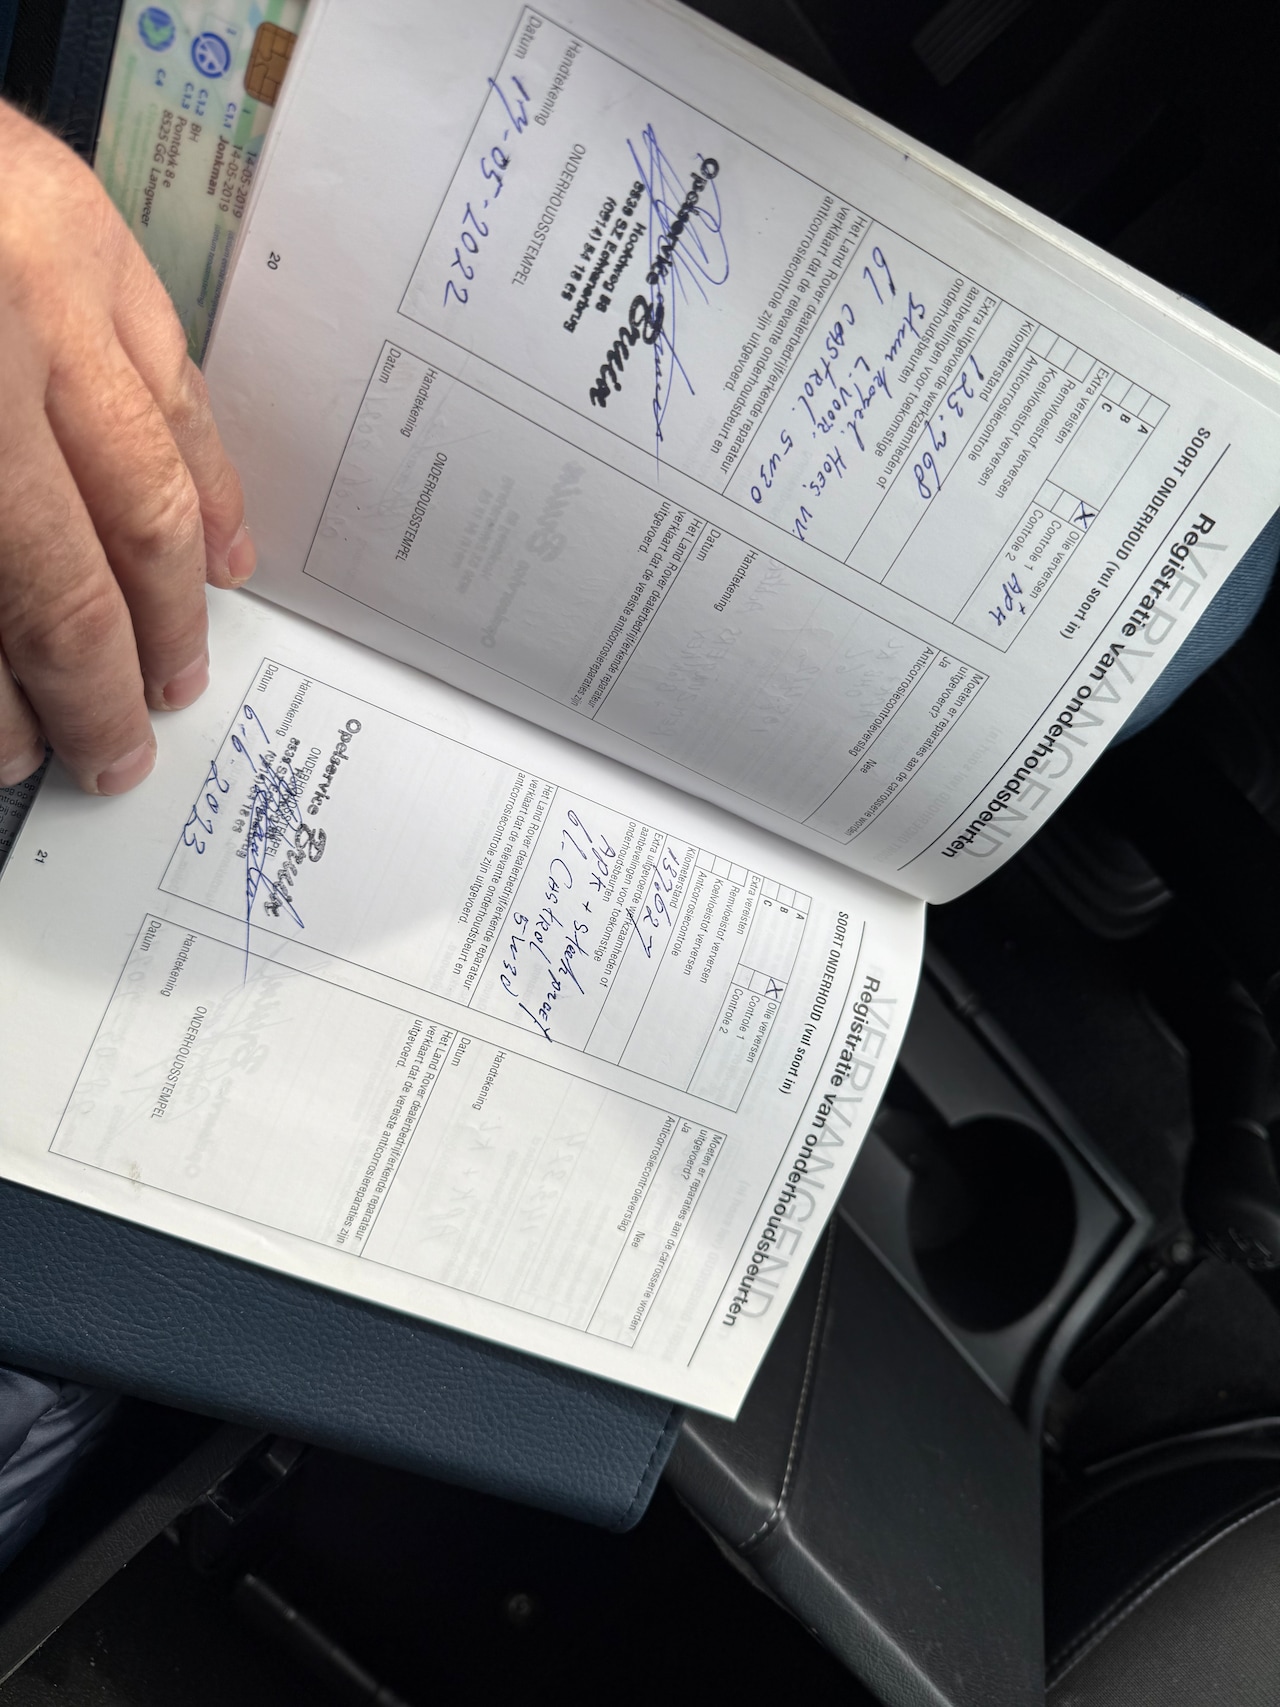 VERVANGEND
Registratie van onderhoudsbeurten
SOORT ONDERHOUD (vul soort in)
A
B
C
Extra verversen
Remvloeistof verversen
Koelvloeistof verversen
Anticorrosiecontrole
X Olie verversen
Controle 1 APK
Controle 2
Kilometerstand
123.768
Extra uitgevoerde werkzaamheden of
aanbevelingen voor toekomstige
onderhoudsbeurten
Stuur kogel. Hoes. VV
L. Voor.
6L CASTROL. 5W30
Het Land Rover dealerbedrijf/erkende reparateur
verklaart dat de relevante onderhoudsbeurt en
anticorrosiecontrole zijn uitgevoerd.
Opelservice Bruin
Hooidweg
8539 SZ Echtenerbrug
(0514) 54 18 69
ONDERHOUDSSTEMPEL
Handtekening
Datum 17-05-2022
Moeten er reparaties aan de carrosserie worden
uitgevoerd?
Ja Nee
Anticorrosiecontroleverslag
Handtekening
Datum
Het Land Rover dealerbedrijf/erkende reparateur
verklaart dat de vereiste anticorrosiereparaties zijn
uitgevoerd.
ONDERHOUDSSTEMPEL
Handtekening
Datum
20
VERVANGEND
Registratie van onderhoudsbeurten
SOORT ONDERHOUD (vul soort in)
A
B
C
Extra verversen
Remvloeistof verversen
Koelvloeistof verversen
Anticorrosiecontrole
X Olie verversen
Controle 1
Controle 2
Kilometerstand
137.627
Extra uitgevoerde werkzaamheden of
aanbevelingen voor toekomstige
onderhoudsbeurten
APK + Steekproef
6L. CASTROL 5W30
Het Land Rover dealerbedrijf/erkende reparateur
verklaart dat de relevante onderhoudsbeurt en
anticorrosiecontrole zijn uitgevoerd.
Opelservice Bruin
ONDERHOUDSSTEMPEL
Handtekening
Datum 6-6-2023
Moeten er reparaties aan de carrosserie worden
uitgevoerd?
Ja Nee
Anticorrosiecontroleverslag
Handtekening
Datum
Het Land Rover dealerbedrijf/erkende reparateur
verklaart dat de vereiste anticorrosiereparaties zijn
uitgevoerd.
ONDERHOUDSSTEMPEL
Handtekening
Datum
21
14-05-2019
14-05-2019
C1.1 Jonkman
C1.2 BH
C1.3 Pontdyk 8 e
8525 GG Langweer
C4